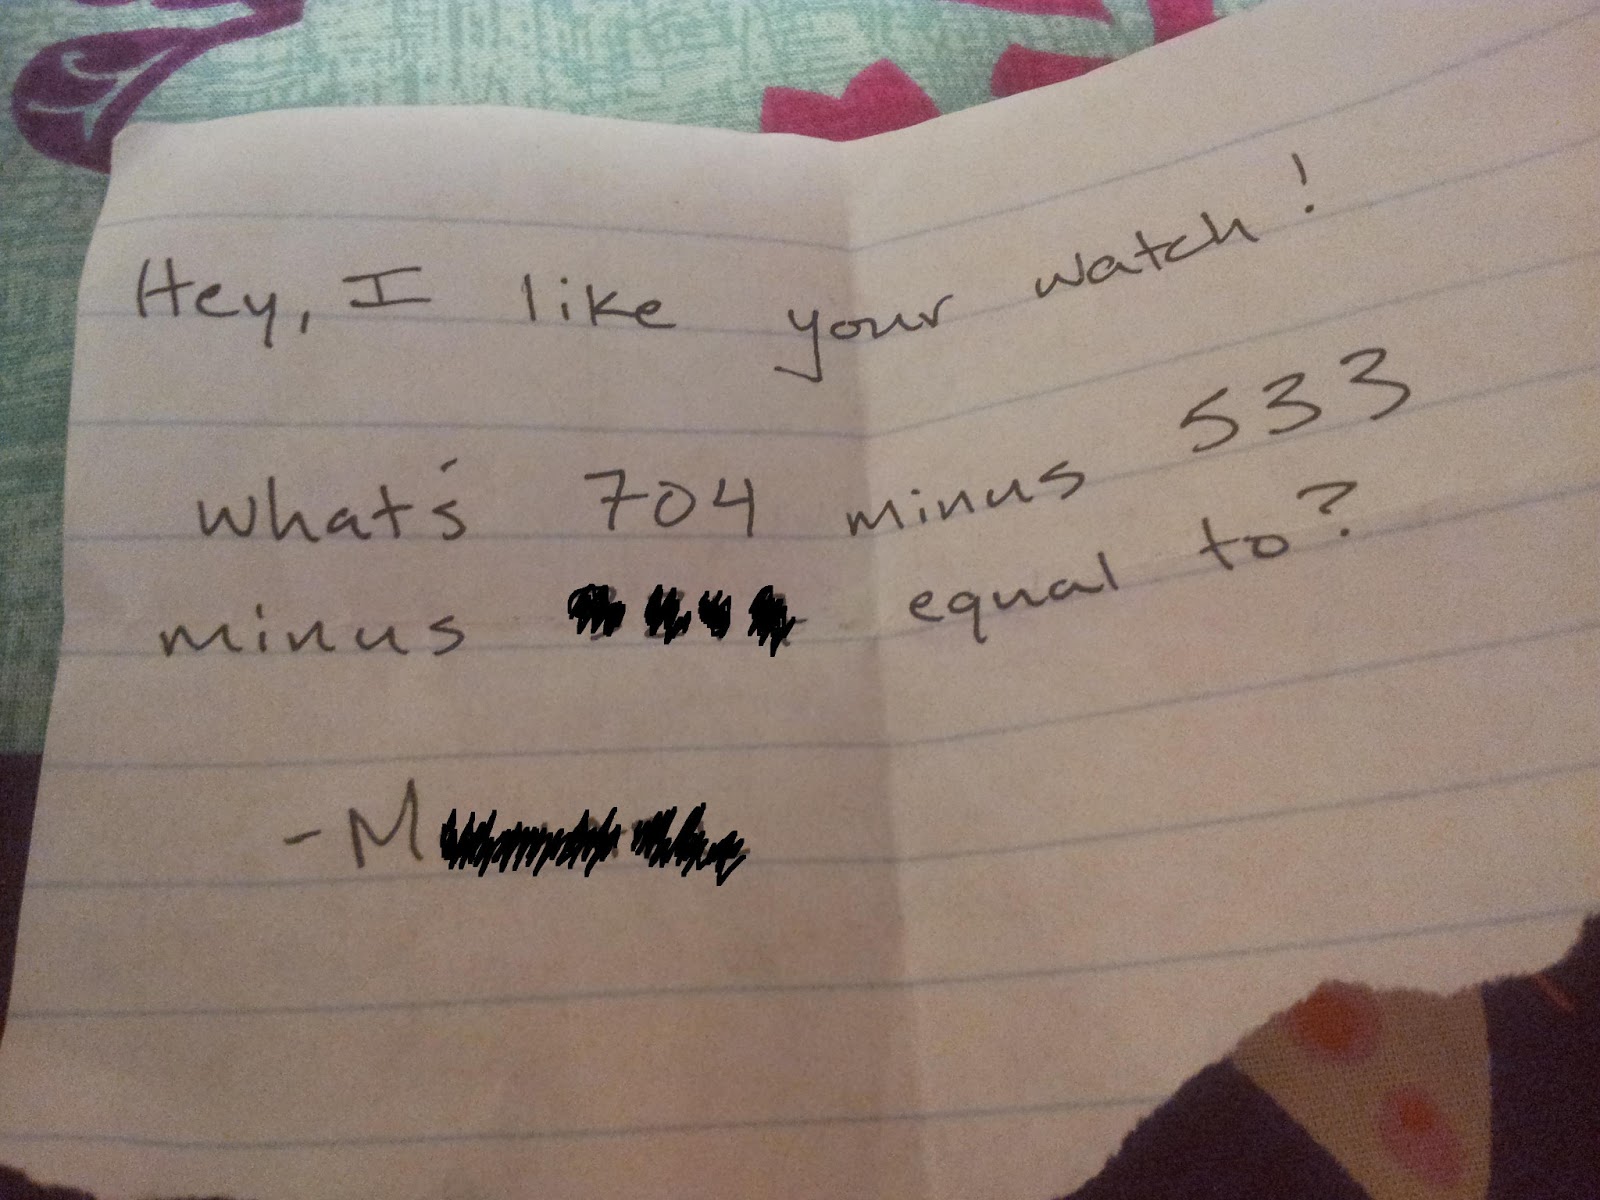 Hey, I like your watch!
What's 704 minus 533
minus equal to?
-M